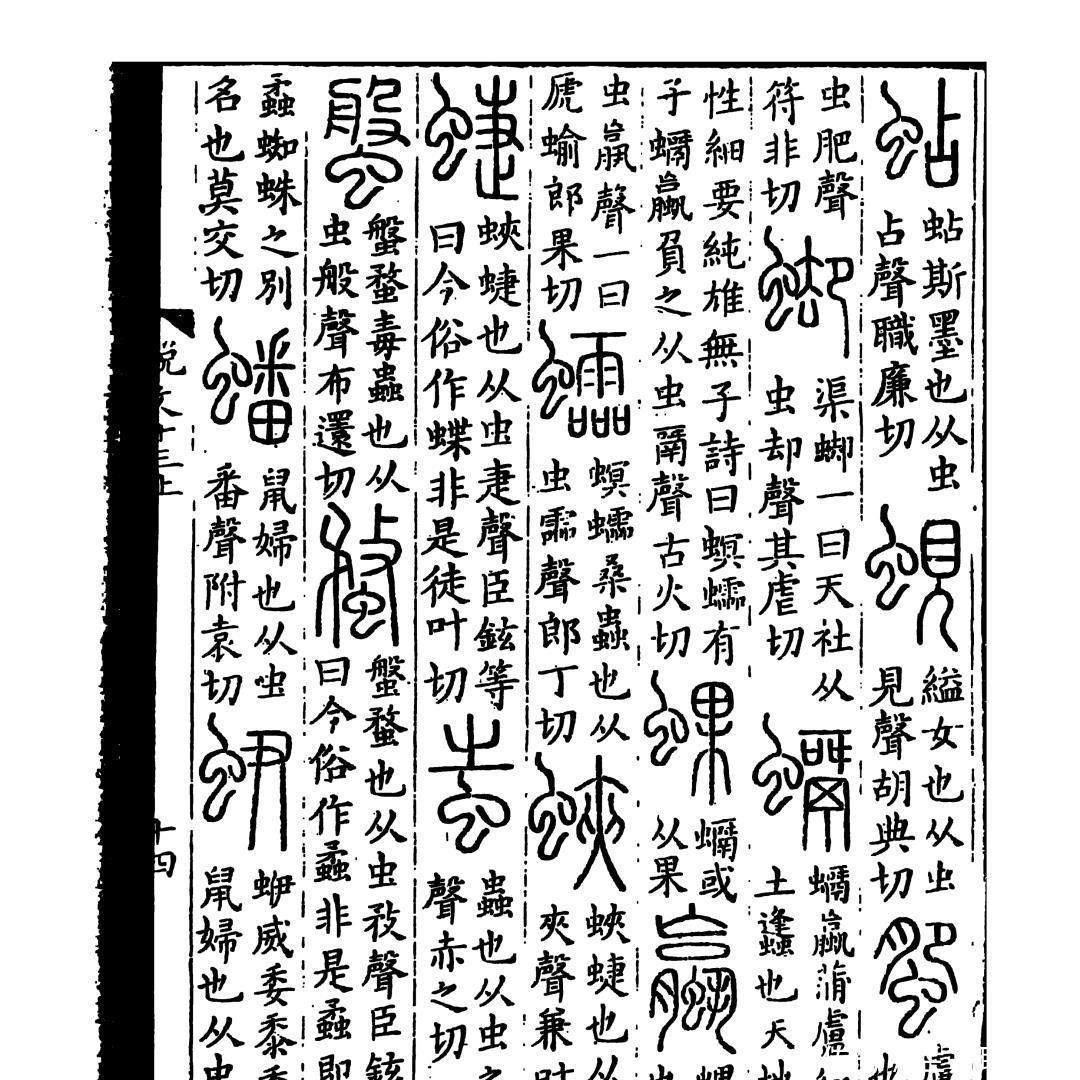 蛅
蛅斯墨也从虫
占聲職廉切
蜆
縊女也从虫
見聲胡典切
蜰
盧
也
虫肥聲
符非切
渠一曰天社从
虫却聲其虐切
蠃蒲盧細
土蠭也天地
性細要純雄無子詩曰螟有
子蠃負之从虫聲古火切
蜾
或
从果
蠃
虫聲一曰
虒蝓郎果切
螟桑蟲也从
虫霝聲郎丁切
蛺
蛺蜨也从
夾聲兼叶
蜨
蛺蜨也从虫疌聲臣鉉等
曰今俗作蝶非是徒叶切
蚩
蟲也从虫之
聲赤之切
螌
螌蝥毒蟲也从
虫般聲布還切
蝥
螌蝥也从虫敄聲臣鉉
曰今俗作蟊非是蟊即
蟊蜘蛛之別
名也莫交切
蟠
鼠婦也从虫
番聲附袁切
蛜
蛜威委黍委
鼠婦也从虫
說文十三上
十四